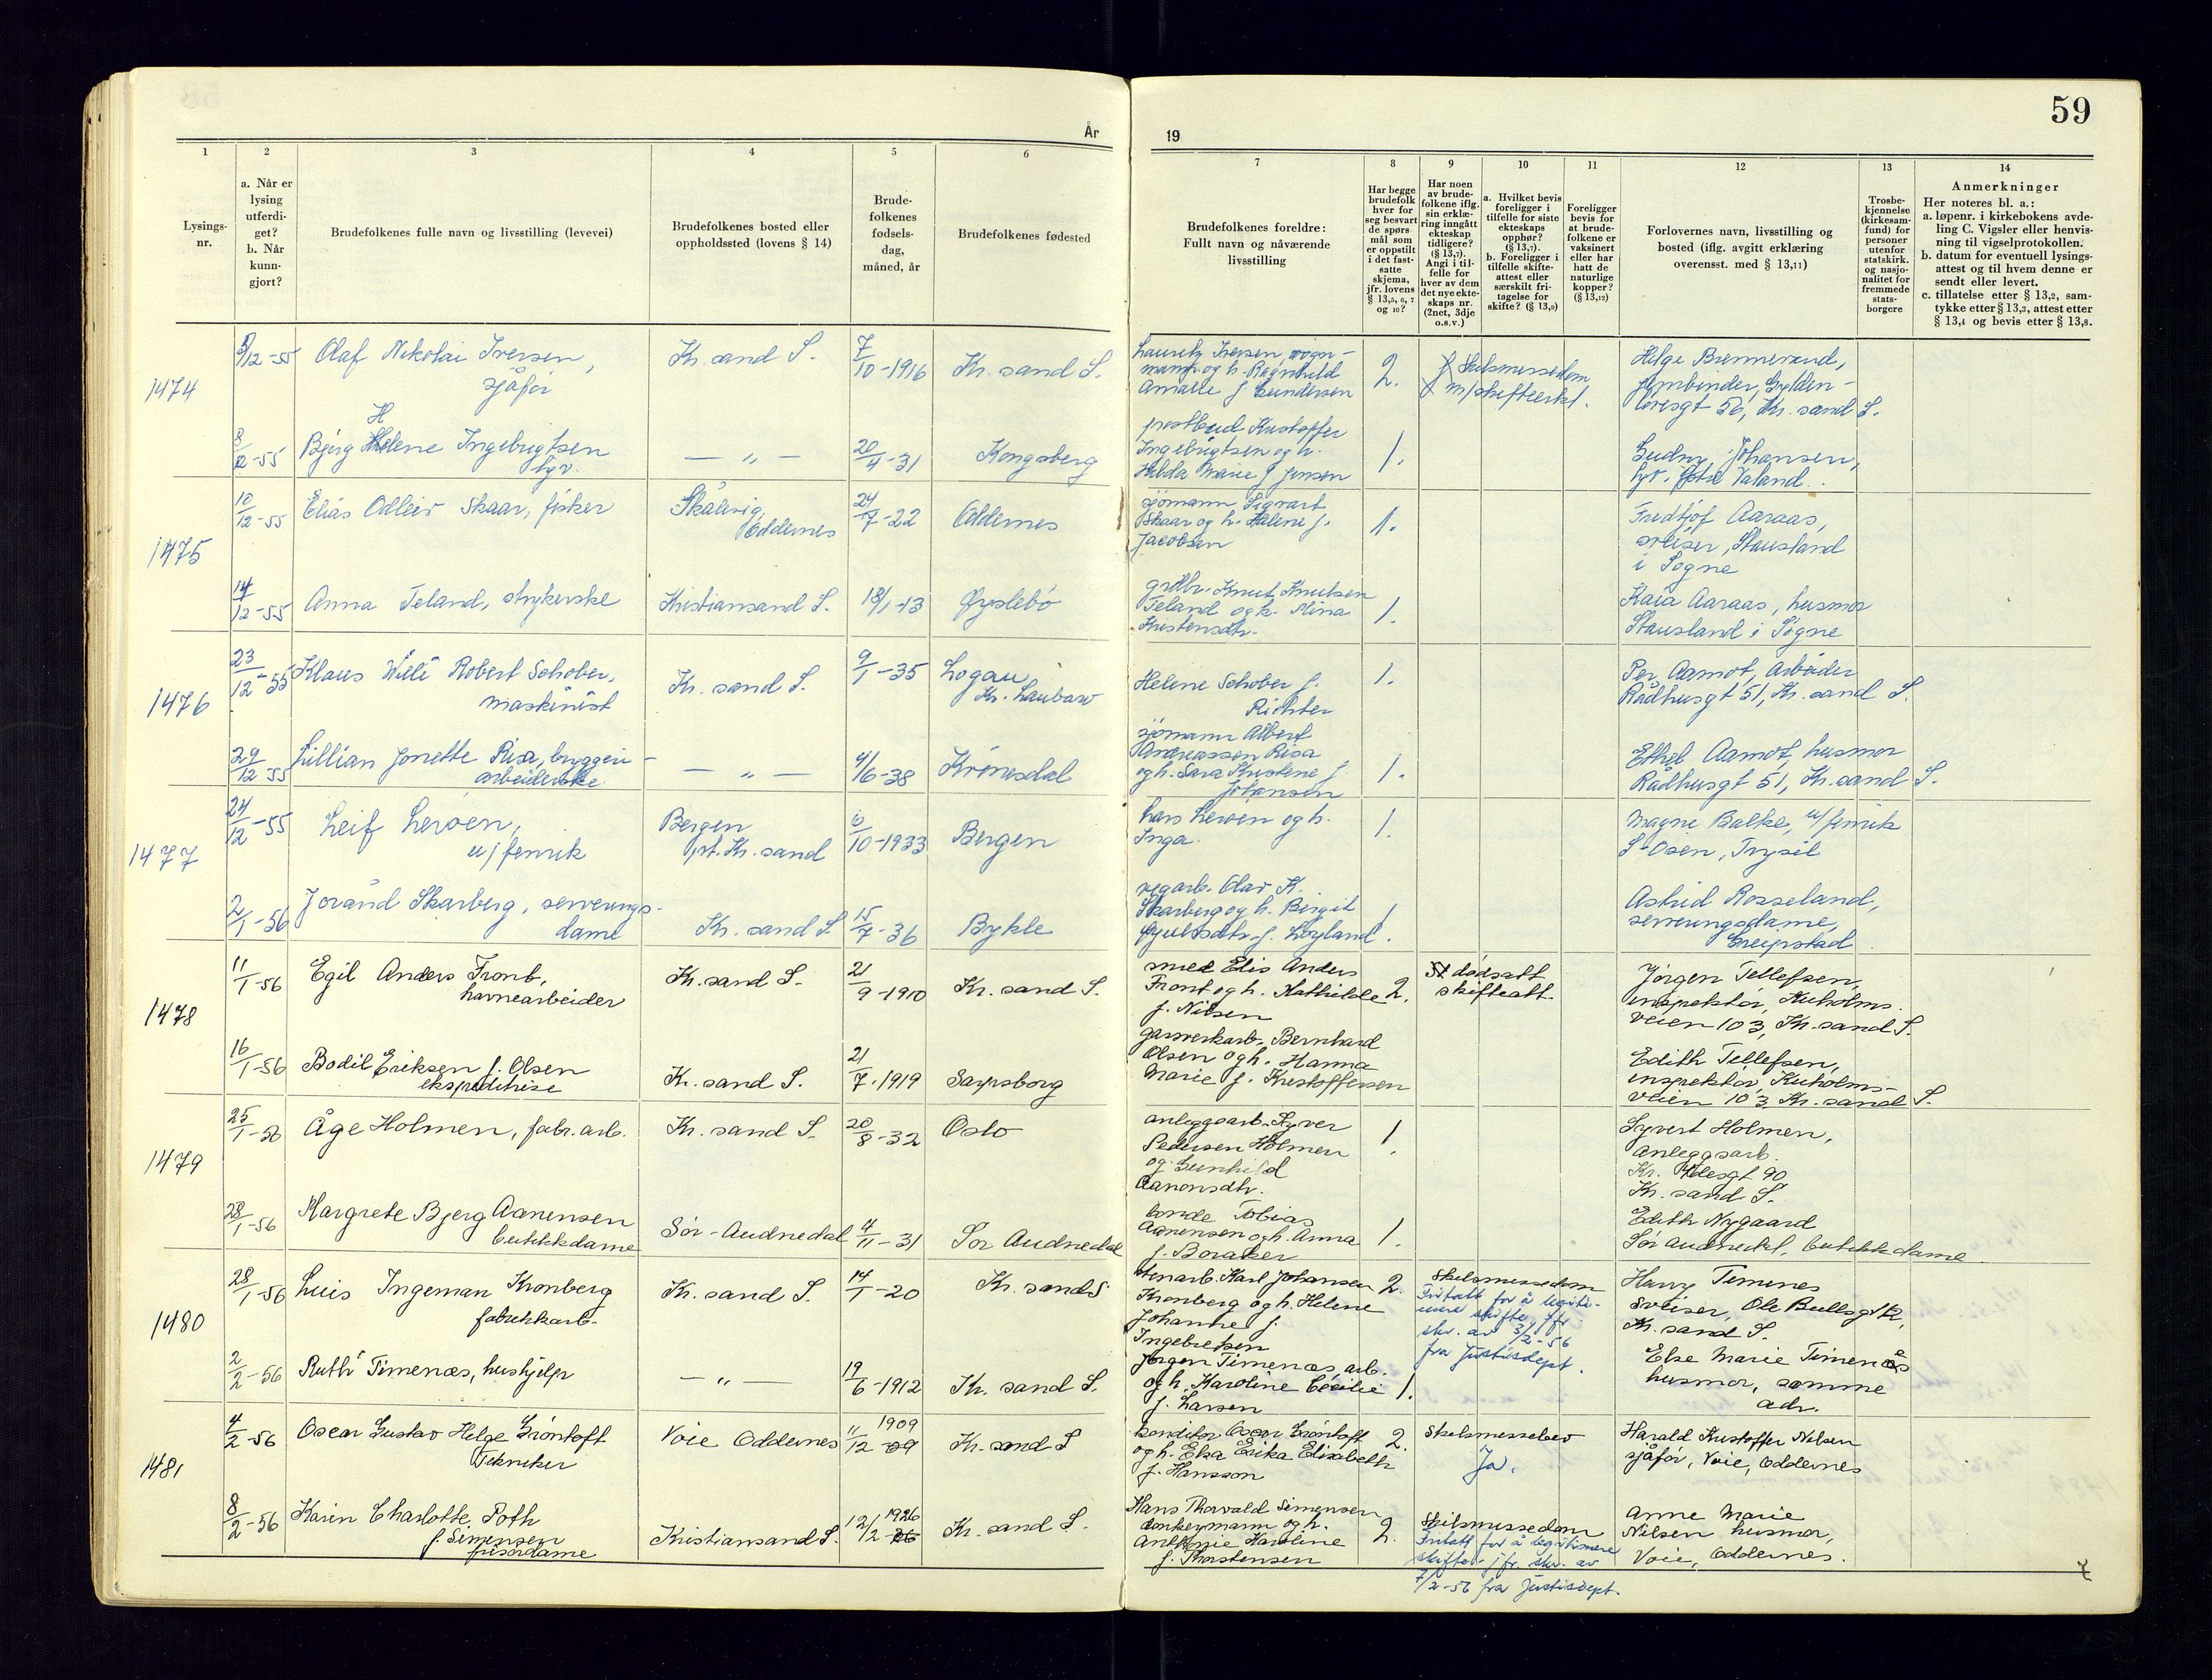 59
År
19
1
2
3
4
5
6
7
8
9
10
11
12
13
14
Lysings-
nr.
a. Når er
lysing
utferdi-
get?
b. Når
kunn-
gjort?
Brudefolkenes fulle navn og livsstilling (levevei)
Brudefolkenes bosted eller
oppholdssted (lovens § 14)
Brude-
folkenes
fødsels-
dag,
måned, år
Brudefolkenes fødested
Brudefolkenes foreldre:
Fullt navn og nåværende
livsstilling
Har begge
brudefolk
hver for
seg besvart
de spørs-
mål som
er oppstilt
i det fast-
satte
skjema,
jfr. lovens
§ 13,5, 6, 7
og 10?
Har noen
av brude-
folkene iflg.
sin erklæ-
ring inngått
ekteskap
tidligere?
(§ 13,7).
Angi i til-
felle for
hver av dem
det nye ekte-
skaps nr.
(2net, 3dje
o.s.v.)
a. Hvilket bevis
foreligger i
tilfelle for siste
ekteskaps
opphør?
(§ 13,7).
b. Foreligger i
tilfelle skifte-
attest eller
særskilt fri-
tagelse for
skifte? (§ 13,9)
Foreligger
bevis for
at brude-
folkene er
vaksinert
eller har
hatt de
naturlige
kopper?
(§ 13,12)
Forlovernes navn, livsstilling og
bosted (iflg. avgitt erklæring
overensst. med § 13,11)
Trosbe-
kjennelse
(kirkesam-
fund) for
personer
utenfor
statskirk.
og nasjo-
nalitet for
fremmede
stats-
borgere
Anmerkninger
Her noteres bl. a.:
a. løpenr. i kirkebokens avde-
ling C. Vigsler eller henvis-
ning til vigselprotokollen.
b. datum for eventuell lysings-
attest og til hvem denne er
sendt eller levert.
c. tillatelse etter § 13,2, sam-
tykke etter § 13,3, attest etter
§ 13,4 og bevis etter § 13,8.
1474
5/12-55 Olaf Nikolai Iversen,
sjåfør
Kr. sand S.
7/10-1916
Kr. sand S.
Lauritz Iversen, vogn-
mann og h. Ragnhild
Amalie f. Gundersen
2.
Skilsmissedom
m/skifteerkl.
Helge Brennersund,
jernbinder, Gylden-
løvesgt 56, Kr. sand S.
8/12-55 Bjørg Helene Ingebrigtsen
H
— „ —
20/4-31
Kongsberg
postbud Kristoffer
Ingebrigtsen og h.
Hilda Marie f. Jensen
1.
Gudny Johansen,
Østre Valand.
1475
10/12-55 Elias Odleiv Skaar, fisker
Skålevig,
Oddernes
24/7-22
Oddernes
sjømann Sigvart
Skaar og h. Helene f.
Jacobsen
1.
Fredtjof Aaraas,
sveiser, Stausland
i Søgne
14/12-55 Anna Teland, strykerske
Kristiansand S.
18/1-13
Øyslebø
grdbr. Knut Knutsen
Teland og h. Mina
Kristensdtr.
1.
Kaia Aaraas, husmor
Stausland i Søgne
1476
23/12-55 Klaus Willi Robert Schober,
maskinist
Kr. sand S.
9/1-35
Logau,
Kr. Laubaw
Helene Schober f.
Richter
1.
Per Aamot, Arbeider
Rådhusgt 51, Kr. sand S.
29/12-55 Lillian Jonette Risa, bryggeri-
arbeiderske
— „ —
4/6-38
Kvinesdal
sjømann Albert
Andreassen Risa
og h. Sara Kristene f.
Johansen
1.
Ethel Aamot, husmor
Rådhusgt 51, Kr. sand S.
1477
24/12-55 Leif Lerøen,
u/fenrik
Bergen
pt. Kr. sand
10/10-1933
Bergen
Lars Lerøen og h.
Inga.
1.
Magne Balke, u/fenrik
S-Osen, Trysil
2/1-56 Jorånd Skarberg, serverings-
dame
Kr. sand S.
15/7-36
Bykle
vegarb. Olav K.
Skarberg og h. Bergit
f. Løyland
1.
Astrid Rosseland,
serveringsdame,
Greipstad
1478
11/1-56 Egil Anders Front,
havnearbeider
Kr. sand S.
21/9-1910
Kr. sand S.
smed Elis Anders
Front og h. Mathilde
f. Nilsen
2.
dødsatt
skifteatt.
Jørgen Tellefsen,
inspektør, Kuholms-
veien 103, Kr. sand S.
16/1-56 Bodil Eriksen f. Olsen
ekspeditrise
Kr. sand S.
21/7-1919
Sarpsborg
garverkarb. Bernhard
Olsen og h. Hanna
Marie f. Kristoffersen
Edith Tellefsen,
inspektør, Kuholms-
veien 103, Kr. sand S.
1479
25/1-56 Åge Holmen, fabr. arb.
Kr. sand S.
20/8-32
Oslo
anleggsarb. Syver
Pedersen Holmen
og Gunhild
Aanonsdtr.
1.
Syvert Holmen,
anleggsarb.
90
Kr. sand S.
28/1-56 Margrete Bjerg Aanensen
butikkdame
Sør-Audnedal
4/11-31
Sør Audnedal
bonde Tobias
Aanensen og h. Anna
f. Boraker
1.
Edith Nygaard
Sør Audnedal, butikkdame
1480
28/1-56 Luis Ingeman Kronberg
fabrikkarb.
Kr. sand S.
14/1-20
Kr. sand S
stenarb. Karl Johansen
Kronberg og h. Helene
Johanne f.
Ingebretsen
2.
Skilsmissedom
Fritatt for å legiti-
mere skifte, jfr
skr. av 3/2-56
fra Justisdept.
Harry Timenes
sveiser, Ole Bullsgt
Kr. sand S.
2/2-56 Ruth Timenæs, hushjelp
— „ —
19/6-1912
Kr. sand S.
Jørgen Timenæs, arb.
og h. Karoline Cecilie
f. Larsen
1.
Else Marie Timenes
husmor, samme
adr.
1481
4/2-56 Oscar Gustav Helge Grøntoft
Tekniker
Voie Oddernes
11/12-09
1909
Kr. sand S
konditor Oscar Grøntoft
og h. Elsa Erika Elisabeth
f. Hansson
2.
Skilsmissebev
Ja.
Harald Kristoffer Nilsen
sjåfør, Voie, Oddernes
8/2-56 Karin Charlotte Poth
f. Simensen
frisørdame
Kristiansand S.
12/2-26
1926
Kr. sand S.
Hans Thorvald Simensen
og h.
Karoline
f. Thorstensen
2.
Skilsmissedom
Fritatt for å legitimere
skifte - jfr. skr. av
7/2-56 fra Justisdept.
Anne Marie
Nilsen husmor,
Voie, Oddernes.